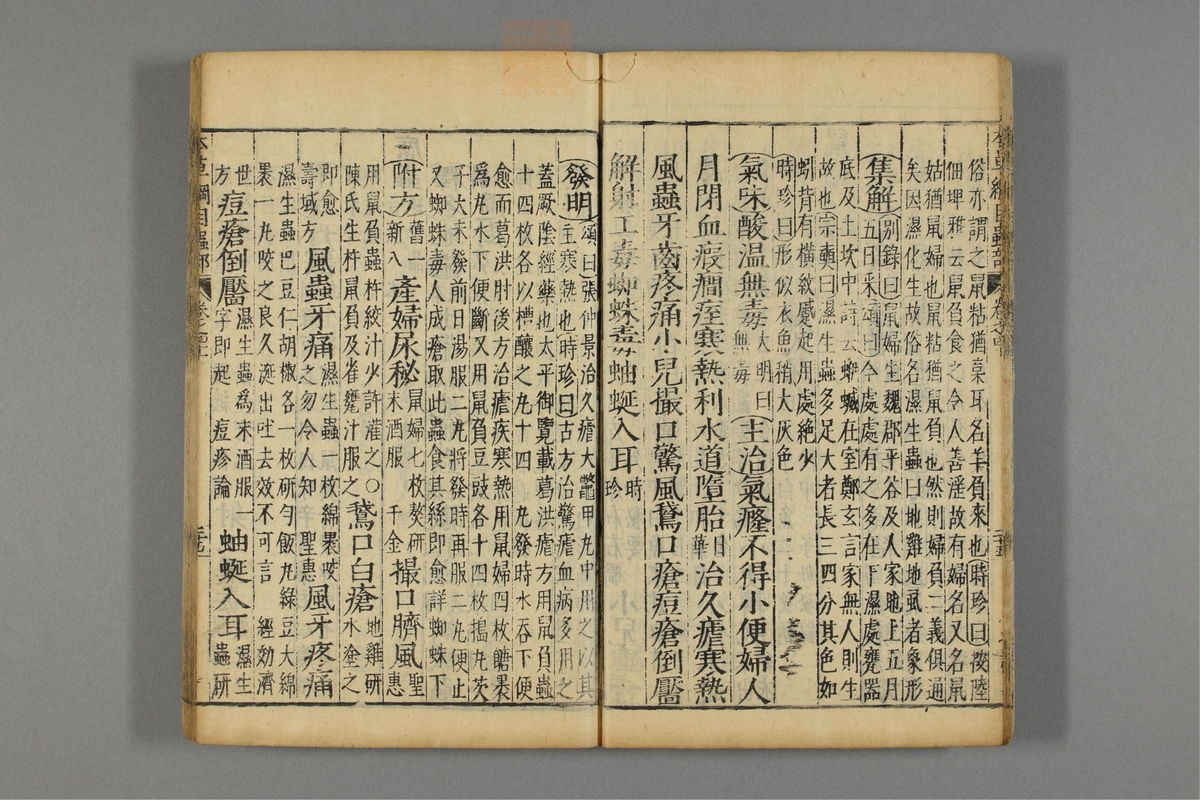 俗亦謂之鼠粘猶枲耳名羊負來也時珍曰按陸
佃埤雅云鼠負食之令人善淫故有婦名又名鼠
姑猶鼠婦也鼠粘猶鼠負也然則婦負二義俱通
矣因濕化生故俗名濕生蟲曰地雞地風者象形
集解別錄曰鼠婦生魏郡平谷及人家地上五月
五日采頌曰今處處有之多在下濕處甕器
底及土坎中詩云蛜蝛在室鄭玄言家無人則生
故也宗奭曰濕生蟲多足大者長三四分其色如
蚓背有橫紋蹙起用處絕少
時珍曰形似衣魚稍大灰色
氣味酸温無毒大明曰無毒主治氣癃不得小便婦人
月閉血瘕癇痓寒熱利水道墮胎日華治久瘧寒熱
風蟲牙齒疼痛小兒撮口驚風鵞口瘡痘瘡倒靨
解射工毒蜘蛛毒蚰蜒入耳時珍
發明頌曰張仲景治久瘧大鼈甲丸中用之以其
主寒熱也時珍曰古方治驚瘧血病多用之
蓋厥陰經藥也太平御覽載葛洪瘧方用鼠負蟲
十四枚各以糟釀之丸十四丸發時水吞下便
愈而葛洪肘後方治瘧疾寒熱用鼠婦四枚糖裹
爲丸水下便斷又用鼠負豆豉各十四枚搗丸芡
子大未發前日湯服二丸將發時再服二丸便止
又蜘蛛毒人成瘡取此蟲食其絲即愈詳蜘蛛下
附方舊一新八產婦尿秘鼠婦七枚熬研末酒服千金撮口臍風聖惠
用鼠負蟲杵絞汁少許灌之○
陳氏生杵鼠負及雀甕汁服之鵞口白瘡地雞研水塗之
即愈
壽域方風蟲牙痛濕生蟲一枚綿裹咬之勿令人知聖惠風牙疼痛
濕生蟲巴豆仁胡椒各一枚研勻飯丸綠豆大綿
裹一丸咬之良久涎出吐去效不可言經効濟
世方痘瘡倒靨濕生蟲為末酒服一字即起痘疹論蚰蜒入耳濕生蟲研